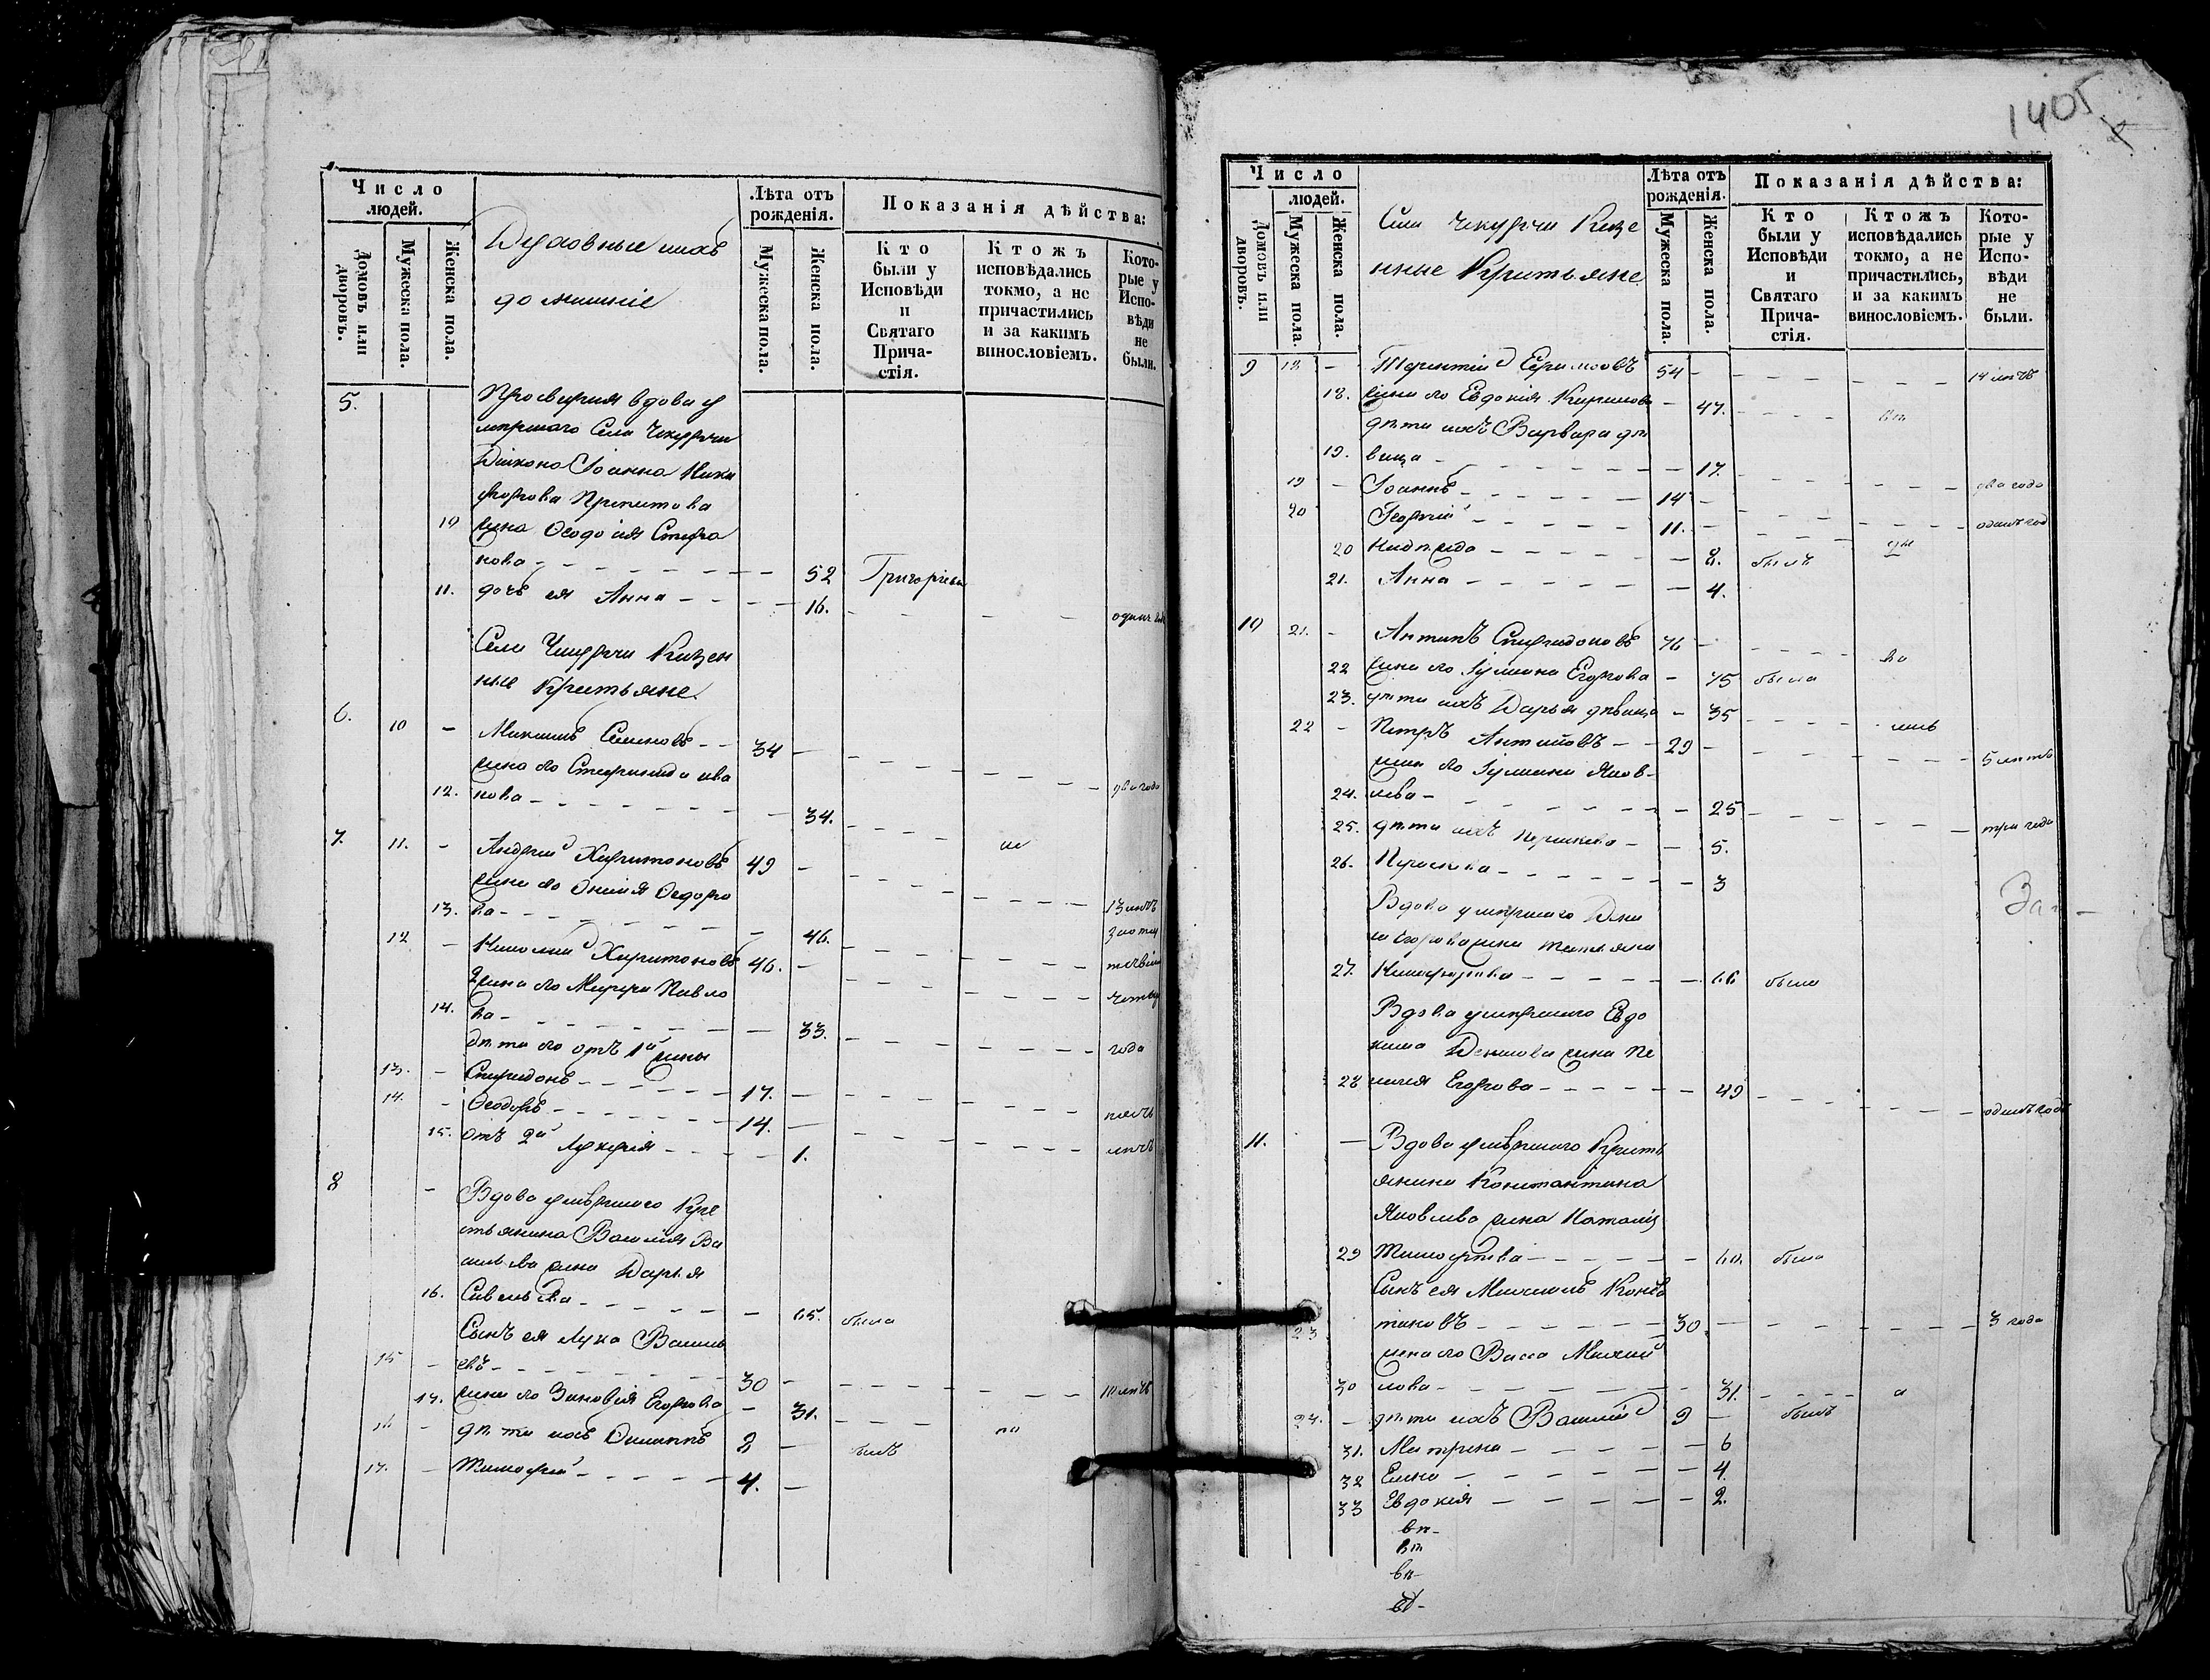 Число
людей.
Домовъ или дворовъ.
Мужеска пола.
Женска пола.
Духовные ихъ
домашніе
Лѣта отъ
рожденія.
Мужеска пола.
Женска пола.
Показанія дѣйства:
Кто
были у
Исповѣди
и
Святаго
Прича-
стія.
Ктожъ
исповѣдались
токмо, а не
причастились
и за какимъ
винословіемъ.
Кото-
рые у
Испо-
вѣди
не
были.
5. Просвирня вдова у
мершаго Села Чекурчи
Діакона Іоанна Ники
форова
10 жена Ѳеодосія Стефа
нова 52 Григорьева
11. дочь ея Анна 16. одинъ
Села Чекурчи Казен
ные Крестьяне
6. 10 Максимъ Семеновъ 34
жена его Степанида ива
12. нова 34. два года
7. 11. Андрей Харитоновъ 49
жена его Ѳедоро
13. ва 46. 13 лѣтъ
12 Николай Харитоновъ 46.
жена его Марѳа Павло
14. ва 33. года
дѣти его отъ 1й жены
13. Спиридонъ 17.
14. Ѳеодоръ 14.
15. отъ 2й Лукерія 1. лѣтъ
8 Вдова умѣршаго Кре
стьянина Василія Ва
сильева жена Дарья
16. Савельева 65. была
Сынъ ея Лука Василь
15 евъ 30 10 лѣтъ
17. жена его Зиновія Егорова 31.
16 дѣти ихъ 2 былъ
17. Тимофей 4.
1405
Число
людей.
Домовъ или дворовъ.
Мужеска пола.
Женска пола.
Села Чекурчи Казе
нные Крестьяне
Лѣта отъ
рожденія.
Мужеска пола.
Женска пола.
Показанія дѣйства:
Кто
были у
Исповѣди
и
Святаго
Прича-
стія.
Ктожъ
исповѣдались
токмо, а не
причастились,
и за какимъ
винословіемъ.
Кото-
рые у
Испо-
вѣди
не
были.
9 18 Терентій Ефимовъ 54 14 лѣтъ
18. жена его Евдокія Кирилова 47.
дѣти ихъ Варвара дѣ
19. вица 17. два года
19 Іоаннъ 14
20 Георгій 11. одинъ год
20 Надежда 8. былъ
21. Анна 4.
10 21. Антипъ Спиридоновъ 76
22 жена его Іуліана Егорова 75 была
23. дѣти ихъ Дарья дѣвица 35
22 Петръ Антиповъ 29 5 лѣтъ
жена его Іуліана Яков-
24. лева 25 три года
25. дѣти ихъ 5.
26. Параскева 3
Вдова умершаго Дени
са Егорова жена Татьяна
27. Никифорова 66 была
Вдова умершаго Евдо
кима Денисова жена Пе
28 лагея Егорова 49 одинъ годъ
11. Вдова умѣршаго Кресть
янина Константина
Яковлева жена Наталія
29 Тимофѣева 60. была
Сынъ ея Михаилъ Конста
23 тиновъ 30 3 года
жена его Васса Михай
30 лова 31.
24. дѣти ихъ Василій 9 былъ
31. Матрена 6
32 Елена 4.
33 Евдокія 2.